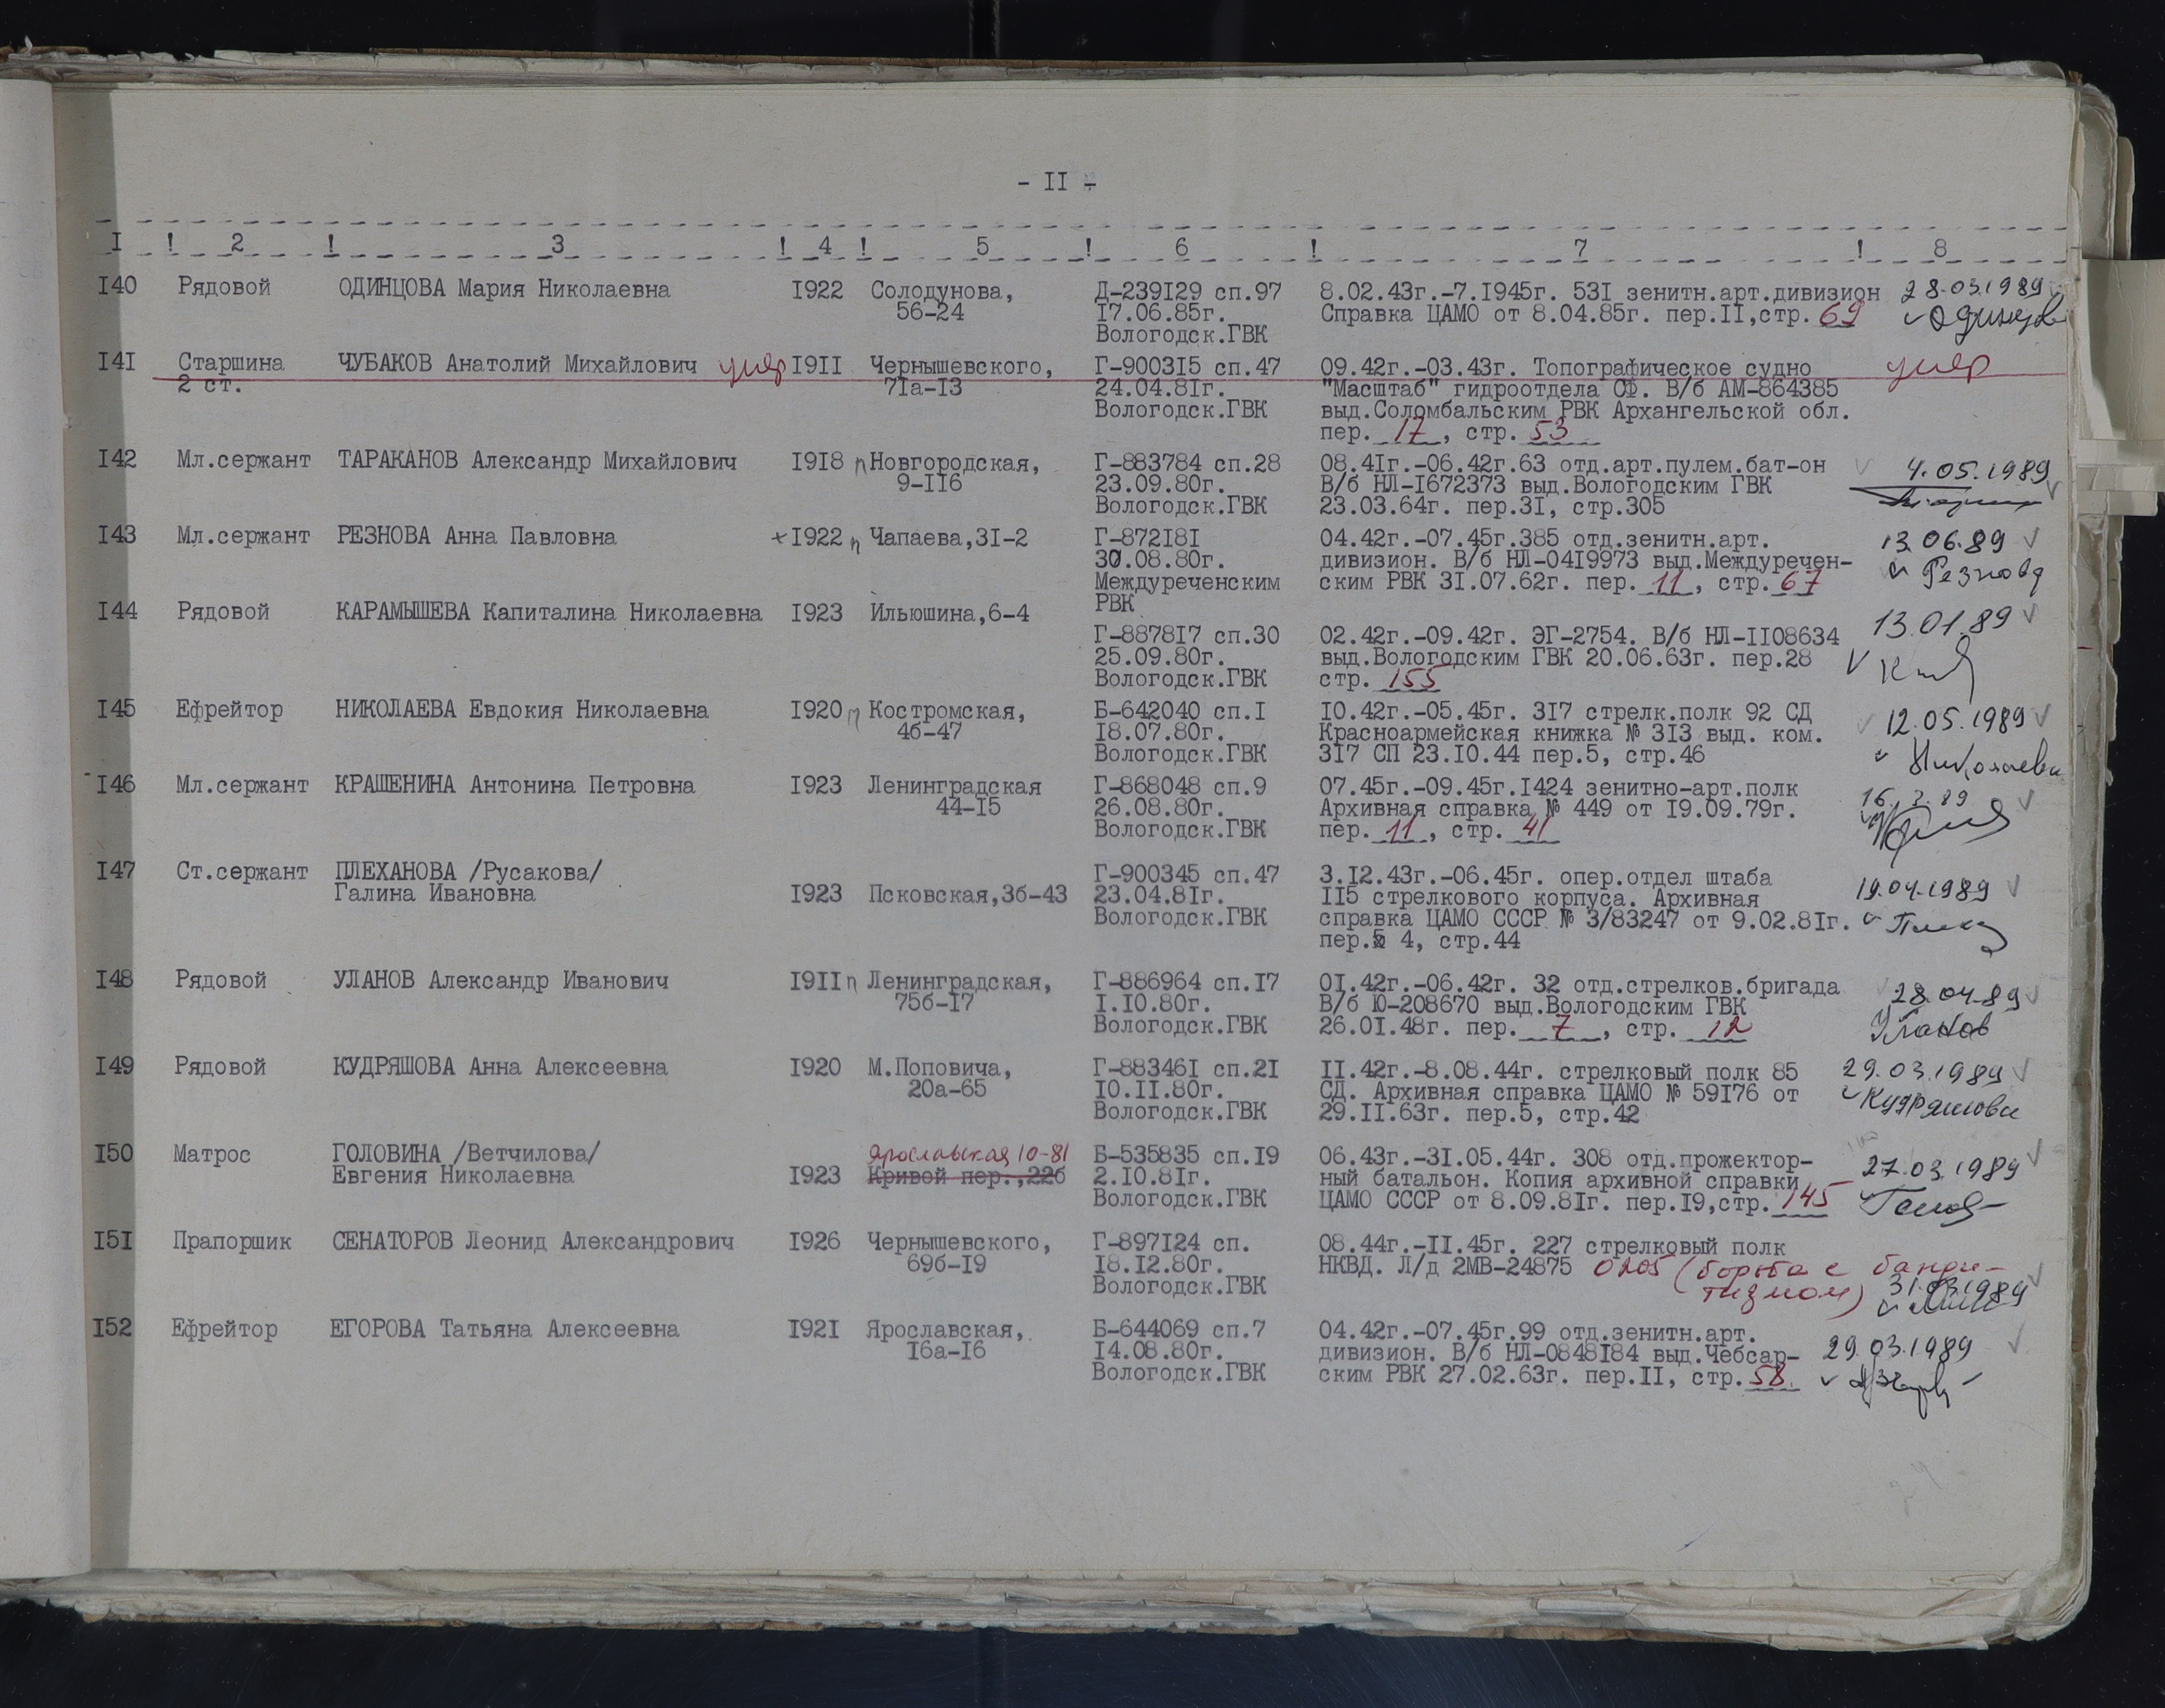 - II -
I ! 2 ! 3 ! 4 ! 5 ! 6 ! 7 ! 8
I40 Рядовой ОДИНЦОВА Мария Николаевна I922 Солодунова, Д-239I29 сп.97 8.02.43г.-7.I945г. 53I зенитн.арт.дивизион 28.03.1989
56-24 I7.06.85г. Справка ЦАМО от 8.04.85г. пер.II,стр. 69 Одинцов
Вологодск.ГВК
I4I Старшина ЧУБАКОВ Анатолий Михайлович умер I9II Чернышевского, Г-9003I5 сп.47 09.42г.-03.43г. Топографическое судно умер
2 ст. 7Iа-I3 24.04.8Iг. "Масштаб" гидроотдела СФ. В/б АМ-864385
Вологодск.ГВК выд.Соломбальским РВК Архангельской обл.
пер. 17, стр. 53
I42 Мл.сержант ТАРАКАНОВ Александр Михайлович I9I8 п Новгородская, Г-883784 сп.28 08.4Iг.-06.42г.63 отд.арт.пулем.бат-он 4.05.1989
9-II6 23.09.80г. В/б НЛ-I672373 выд.Вологодским ГВК
Вологодск.ГВК 23.03.64г. пер.3I, стр.305
I43 Мл.сержант РЕЗНОВА Анна Павловна +I922 п Чапаева,3I-2 Г-872I8I 04.42г.-07.45г.385 отд.зенитн.арт. 13.06.89
30.08.80г. дивизион. В/б НЛ-04I9973 выд.Междуречен- Резнова
Междуреченским ским РВК 3I.07.62г. пер. 11, стр. 67
РВК
I44 Рядовой КАРАМЫШЕВА Капиталина Николаевна I923 Ильюшина,6-4 13.01.89
Г-8878I7 сп.30 02.42г.-09.42г. ЭГ-2754. В/б НЛ-II08634
25.09.80г. выд.Вологодским ГВК 20.06.63г. пер.28
Вологодск.ГВК стр. 155
I45 Ефрейтор НИКОЛАЕВА Евдокия Николаевна I920 п Костромская, Б-642040 сп.I I0.42г.-05.45г. 3I7 стрелк.полк 92 СД 12.05.1989
4б-47 I8.07.80г. Красноармейская книжка № 3I3 выд. ком.
Вологодск.ГВК 3I7 СП 23.I0.44 пер.5, стр.46 Николаева
I46 Мл.сержант КРАШЕНИНА Антонина Петровна I923 Ленинградская Г-868048 сп.9 07.45г.-09.45г.I424 зенитно-арт.полк 16.3.89
44-I5 26.08.80г. Архивная справка № 449 от I9.09.79г.
Вологодск.ГВК пер. 11, стр. 41
I47 Ст.сержант ПЛЕХАНОВА /Русакова/ Г-900345 сп.47 3.I2.43г.-06.45г. опер.отдел штаба
Галина Ивановна I923 Псковская,3б-43 23.04.8Iг. II5 стрелкового корпуса. Архивная 19.04.1989
Вологодск.ГВК справка ЦАМО СССР № 3/83247 от 9.02.8Iг.
пер.5 4, стр.44
I48 Рядовой УЛАНОВ Александр Иванович I9II п Ленинградская, Г-886964 сп.I7 0I.42г.-06.42г. 32 отд.стрелков.бригада 28.04.89
75б-I7 I.I0.80г. В/б Ю-208670 выд.Вологодским ГВК
Вологодск.ГВК 26.0I.48г. пер. 7, стр. 12 Уланов
I49 Рядовой КУДРЯШОВА Анна Алексеевна I920 М.Поповича, Г-88346I сп.2I II.42г.-8.08.44г. стрелковый полк 85 29.03.1989
20а-65 I0.II.80г. СД. Архивная справка ЦАМО № 59I76 от Кудряшова
Вологодск.ГВК 29.II.63г. пер.5, стр.42
I50 Матрос ГОЛОВИНА /Ветчилова/ Ярославская 10-81 Б-535835 сп.I9 06.43г.-3I.05.44г. 308 отд.прожектор-
Евгения Николаевна I923 Кривой пер.,22б 2.I0.8Iг. ный батальон. Копия архивной справки 27.03.1989
Вологодск.ГВК ЦАМО СССР от 8.09.8Iг. пер.I9,стр. 145
I5I Прапорщик СЕНАТОРОВ Леонид Александрович I926 Чернышевского, Г-897I24 сп. 08.44г.-II.45г. 227 стрелковый полк
69б-I9 I8.I2.80г. НКВД. Л/д 2МВ-24875 0205 (борьба с банди-
Вологодск.ГВК тизмом) 31.03.1989
I52 Ефрейтор ЕГОРОВА Татьяна Алексеевна I92I Ярославская, Б-644069 сп.7 04.42г.-07.45г.99 отд.зенитн.арт.
I6а-I6 I4.08.80г. дивизион. В/б НЛ-0848I84 выд.Чебсар- 29.03.1989
Вологодск.ГВК ским РВК 27.02.63г. пер.II, стр. 58